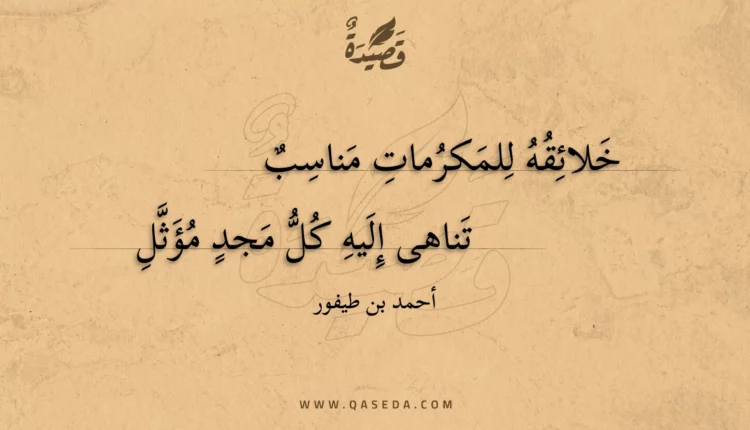 قَصِيْدَةٌ
خَلائِقُهُ لِلمَكرُماتِ مَناسِبٌ
تَناهى إِلَيهِ كُلُّ مَجدٍ مُؤَثَّلِ
أحمد بن طيفور
WWW.QASEDA.COM